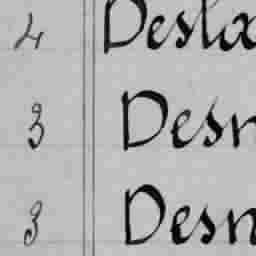 4 Desla
3 Desn
3 Desn